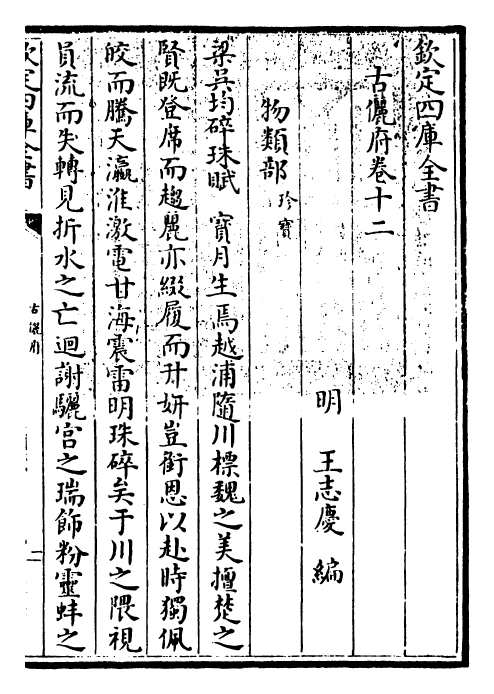 欽定四庫全書
古儷府卷十二
明 王志慶 編
物類部 珍寶
梁吳均碎珠賦 寳月生焉越浦隨川標魏之美擅楚之
賢既登席而趨麗亦綴履而升妍豈銜恩以赴時獨佩
皎而騰天瀛淮激電甘海震雷明珠碎矣于川之隈視
員流而失轉見折水之亡迴謝驪宫之瑞飾粉靈蚌之
欽定四庫全書
古儷府